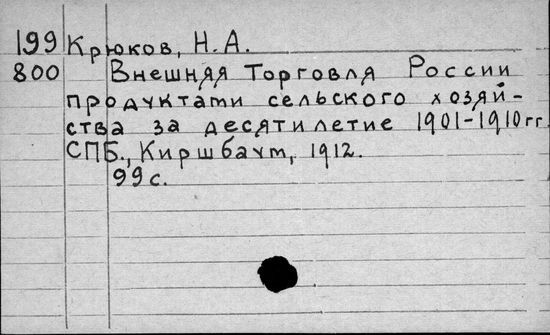 199 Крюков, Н.А.
800 Внешняя торговля России
продуктами сельского хозяй-
ства за десятилетие 1901-1910гг.
СПБ., Киршбаум, 1912.
99с.